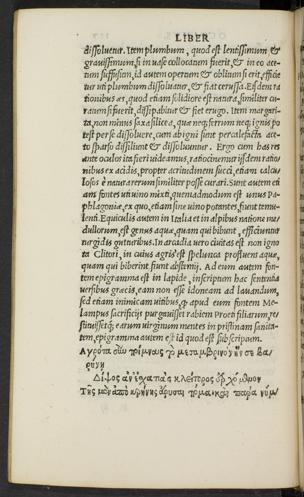 LIBER
dissoluetur. Item plumbum, quod est lentissimum &
grauissimum, si in uase collocatum fuerit, & in eo ace-
tum suffusum, id autem opertum & oblitum si erit, efficie
tur uti plumbum dissoluatur, & fiat cerussa. Eisdem ra
tionibus æs, quod etiam solidiore est natura, similiter cu-
ratum si fuerit, dissipabitur & fiet erugo. Item margari-
ta, non minus saxa silicea, quæ neq; ferrum neq; ignis po
test per se dissoluere, cum ab igni sunt percalefacta aceto
sparso dissiliunt & dissoluuntur. Ergo cum has res
ante oculos ita fieri uideamus, ratiocinemur iisdem ratio
nibus ex acidis, propter acritudinem succi, etiam calcu
losos è natura rerum similiter posse curari. Sunt autem eti
am fontes uti uino mixti, quemadmodum est unus Pa-
phlagoniæ, ex quo, etiam sine uino potantes, fiunt temu-
lenti. Equiculis autem in Italia et in alpibus natione me
dullorum, est genus aquæ, quam qui bibunt, efficiuntur
turgidis gutturibus. In arcadia uero ciuitas est non igno
ta Clitori, in cuius agris est spelunca profluens aqua,
quam qui biberint fiunt abstemij. Ad eum autem fon-
tem epigramma est in lapide, inscriptum hac sententia
uersibus græcis, eam non esse idoneam ad lauandum,
sed etiam inimicam uitibus, apud eum fontem Me-
lampus sacrificijs purgauisset rabiem Prœti filiarum, re
stituissetq; earum uirginum mentes in pristinam sanita-
tem, epigramma autem est id quod est subscriptum.